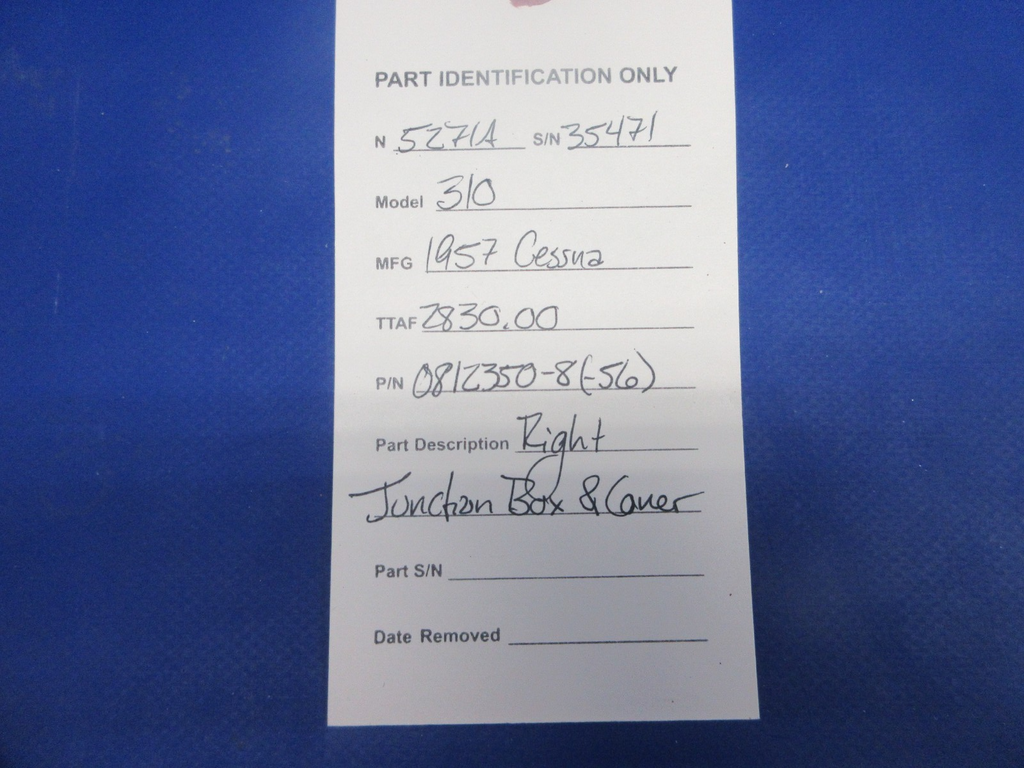 PART IDENTIFICATION ONLY
N 5271A S/N 35471
Model 310
MFG 1957 Cessna
TTAF 2830.00
P/N 0812350-8(-56)
Part Description Right
Junction Box & Cover
Part S/N
Date Removed